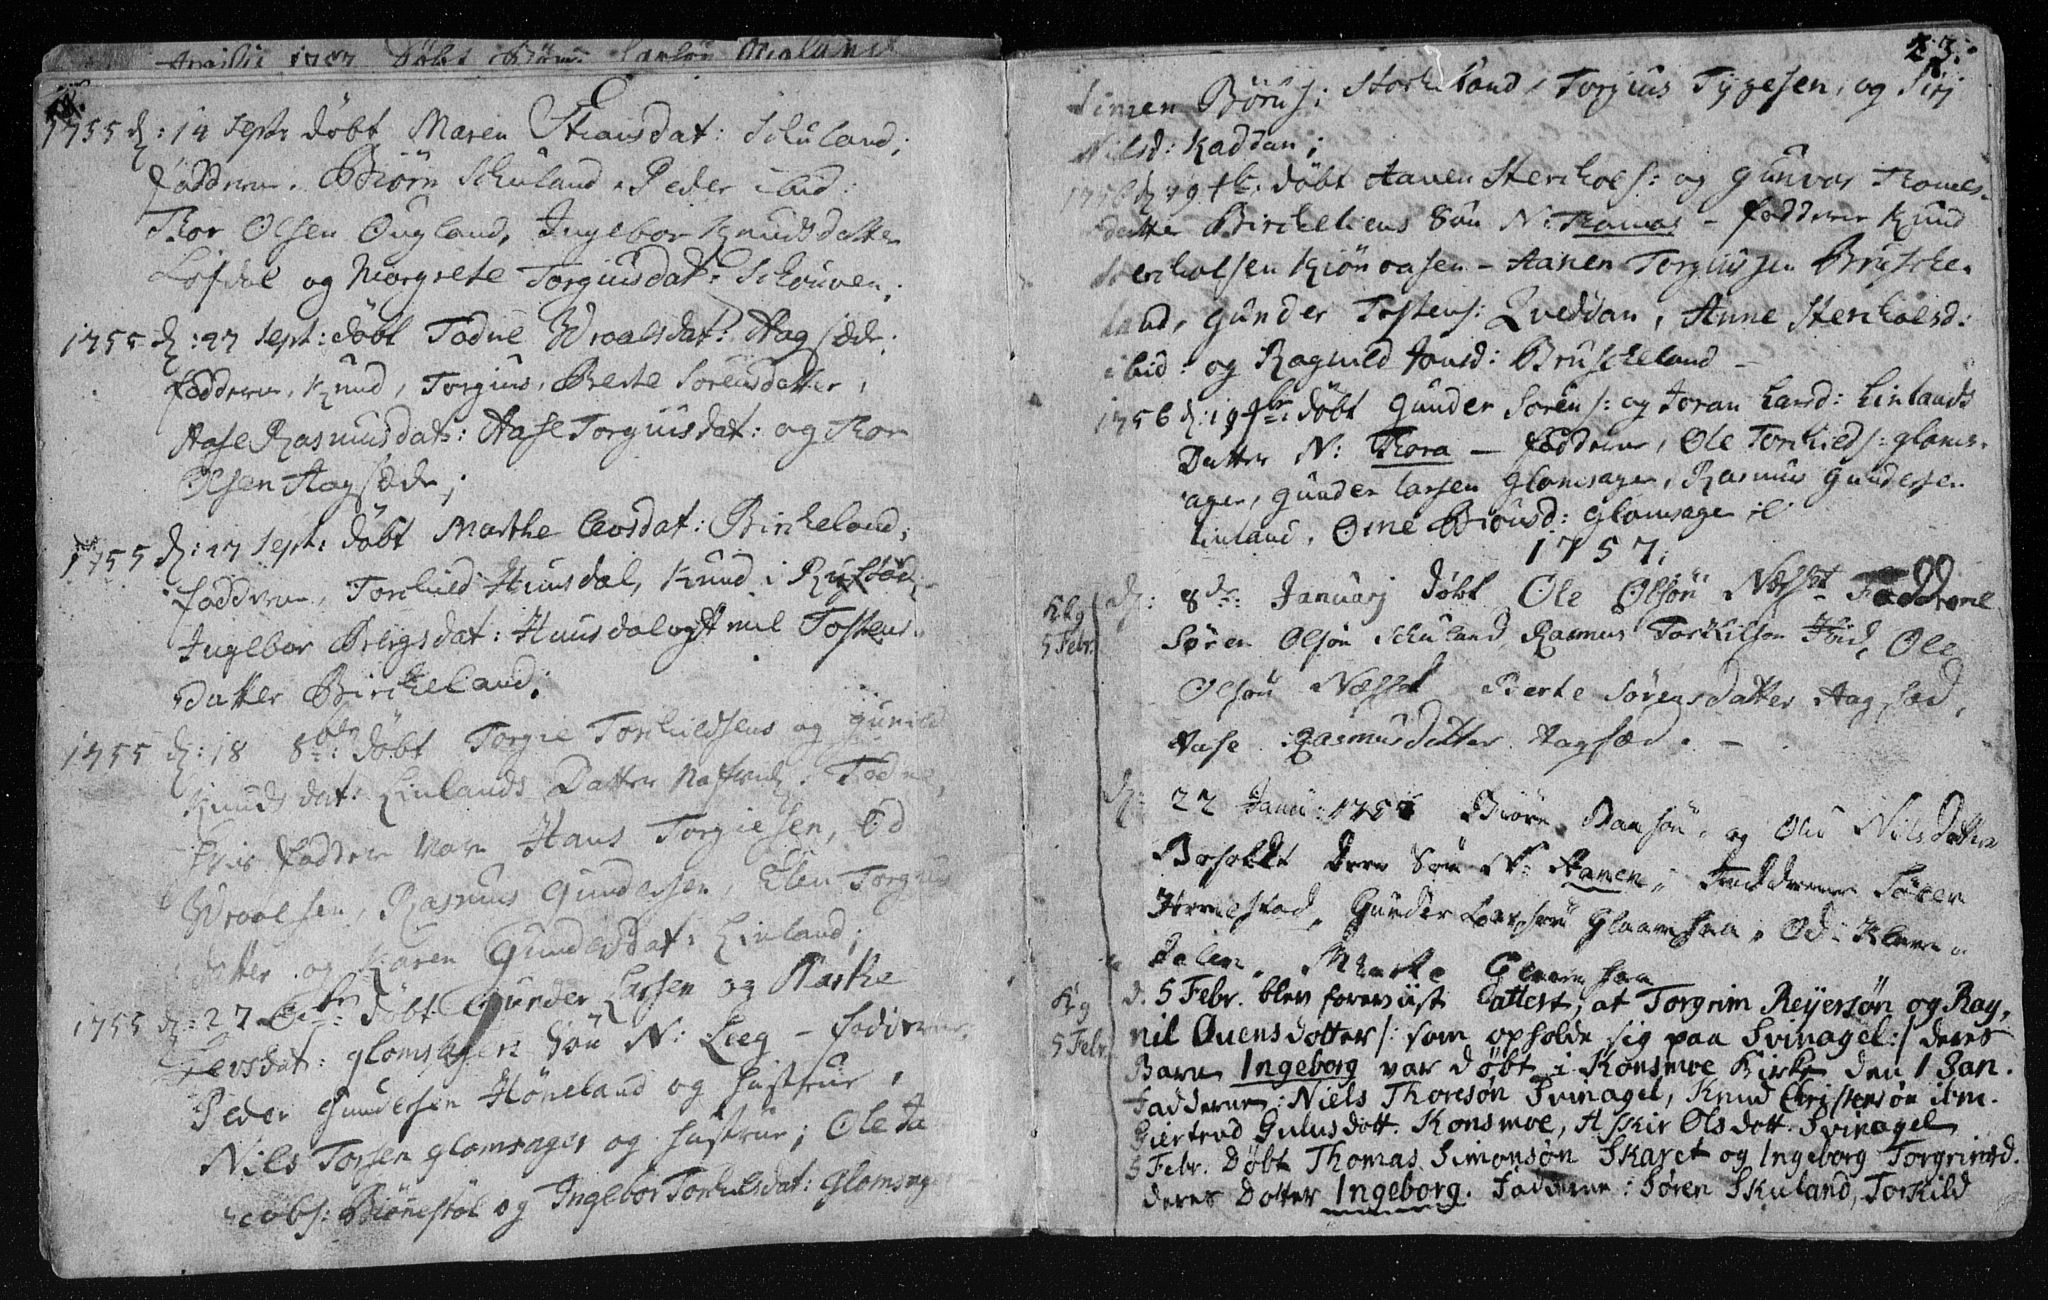 Aprilii 1757 Døbt Børn
1755 d: 14 Septr døbt Maren Stiansdat: Schuland;
fadderne. Biörn Schuland, Peder ibid:
Thor Olsen Ougland, Ingebor Knudsdatter
Löfdal og Margrete Torgiusdat: Schouven;
1755 d: 27 Sept: döbt Todne Wroalsdat: Aagsæde;
fadderne, Knud, Torgius, Berte Sorensdatter,
Aase Rasmusdat: Aase Torgiusdat: og Thor
Olsen Aagsæde;
1755 d: 27 Sept: døbt Marthe Levsdat: Birkeland;
fadderne, Torkild Hunsdal, Knud i
Ingebor Bergsdat: Hunsdal og Anne Tostens
datter Birckeland;
1755 d: 18 8br: døbt Torgie Torkieldsens og Gunild
Knudsdat: Linlands Datter Nafnl: Todne,
hvis faddere vare Hans Torgiesen, Od
Wroalsen, Rasmus Gundersen, Elen Torgius
datter og Karen Gundersdat: Linland;
1755 d: 27 døbt Gunder Larsen og Marthe
Levsdat: Glomsagers Sön N: Leeg - fadderne
Peder Gundersen Høneland og hustrue,
Niels Torsen Glomsager og hustrue; Ole Ja
cobs: Biönestöl og Ingebor Torkilsdat: Glomsager
23.
Simen Börufs: Storkeland, Torgius Tygesen, og Siri
Nilsd: Kaddan;
døbt Aanen Sterkols: og Gunvor Thomes
datter Birckeliens Sön N: Thomas - fadderne Knud
Sterkolsen Kiönaasen - Aanen Torgiussen Brusche
land, Gunder Tostens: Qveddan, Anne Sterkolsd:
ibid: og Ragnild Jonsd: Bruscheland -
1756 d: 19 döbt Gunder Sörens: og Joran Larsd: Linlands
Datter N: Thora - fadderne, Ole Torkield s: Gloms-
ager, Gunder Larsen Glomsager, Rasmus Gundersen
Linland, Orne Biönsd: Glomsage
1757.
Kkg 5 Febr.
d: 8de: Januarj döbt Ole Olsön Næsset Fadderne
Søren Olsön Schuland, Rasmus Torkilsön Ibid, Ole
Olsön Næsset Berte Sørensdatter Aagsæd,
Aase Rasmusdatter Aagsæd. -
d: 22 Janu: Biörn og Nilsdatter
dere Sön N: Aanen, Fadderne Sören
Gunder Larsön Glaamsaa, Od
dalen. Marte Glaamsaa
Kkg 5 Febr.
d. 5 Febr. blev foreviist attest, at Torgrim Reyersön og Rag,
nil Ovensdotter /: som opholde sig paa Svinagel:/ deres
Barn Ingeborg var døbt i Konsmoe Kirke den 1 Jan.
Fadderne: Niels Thoresøn Svinagel, Knud Christensøn ibm.
Giertrud Gulusdott. Konsmoe, Asskir Olsdott. Svinagel
5 Febr. Døbt Thomas Simonsøn Skaret og Ingeborg Torgrimsd.
deres Dotter Ingeborg. Fadderne: Søren Skuland, Torkild